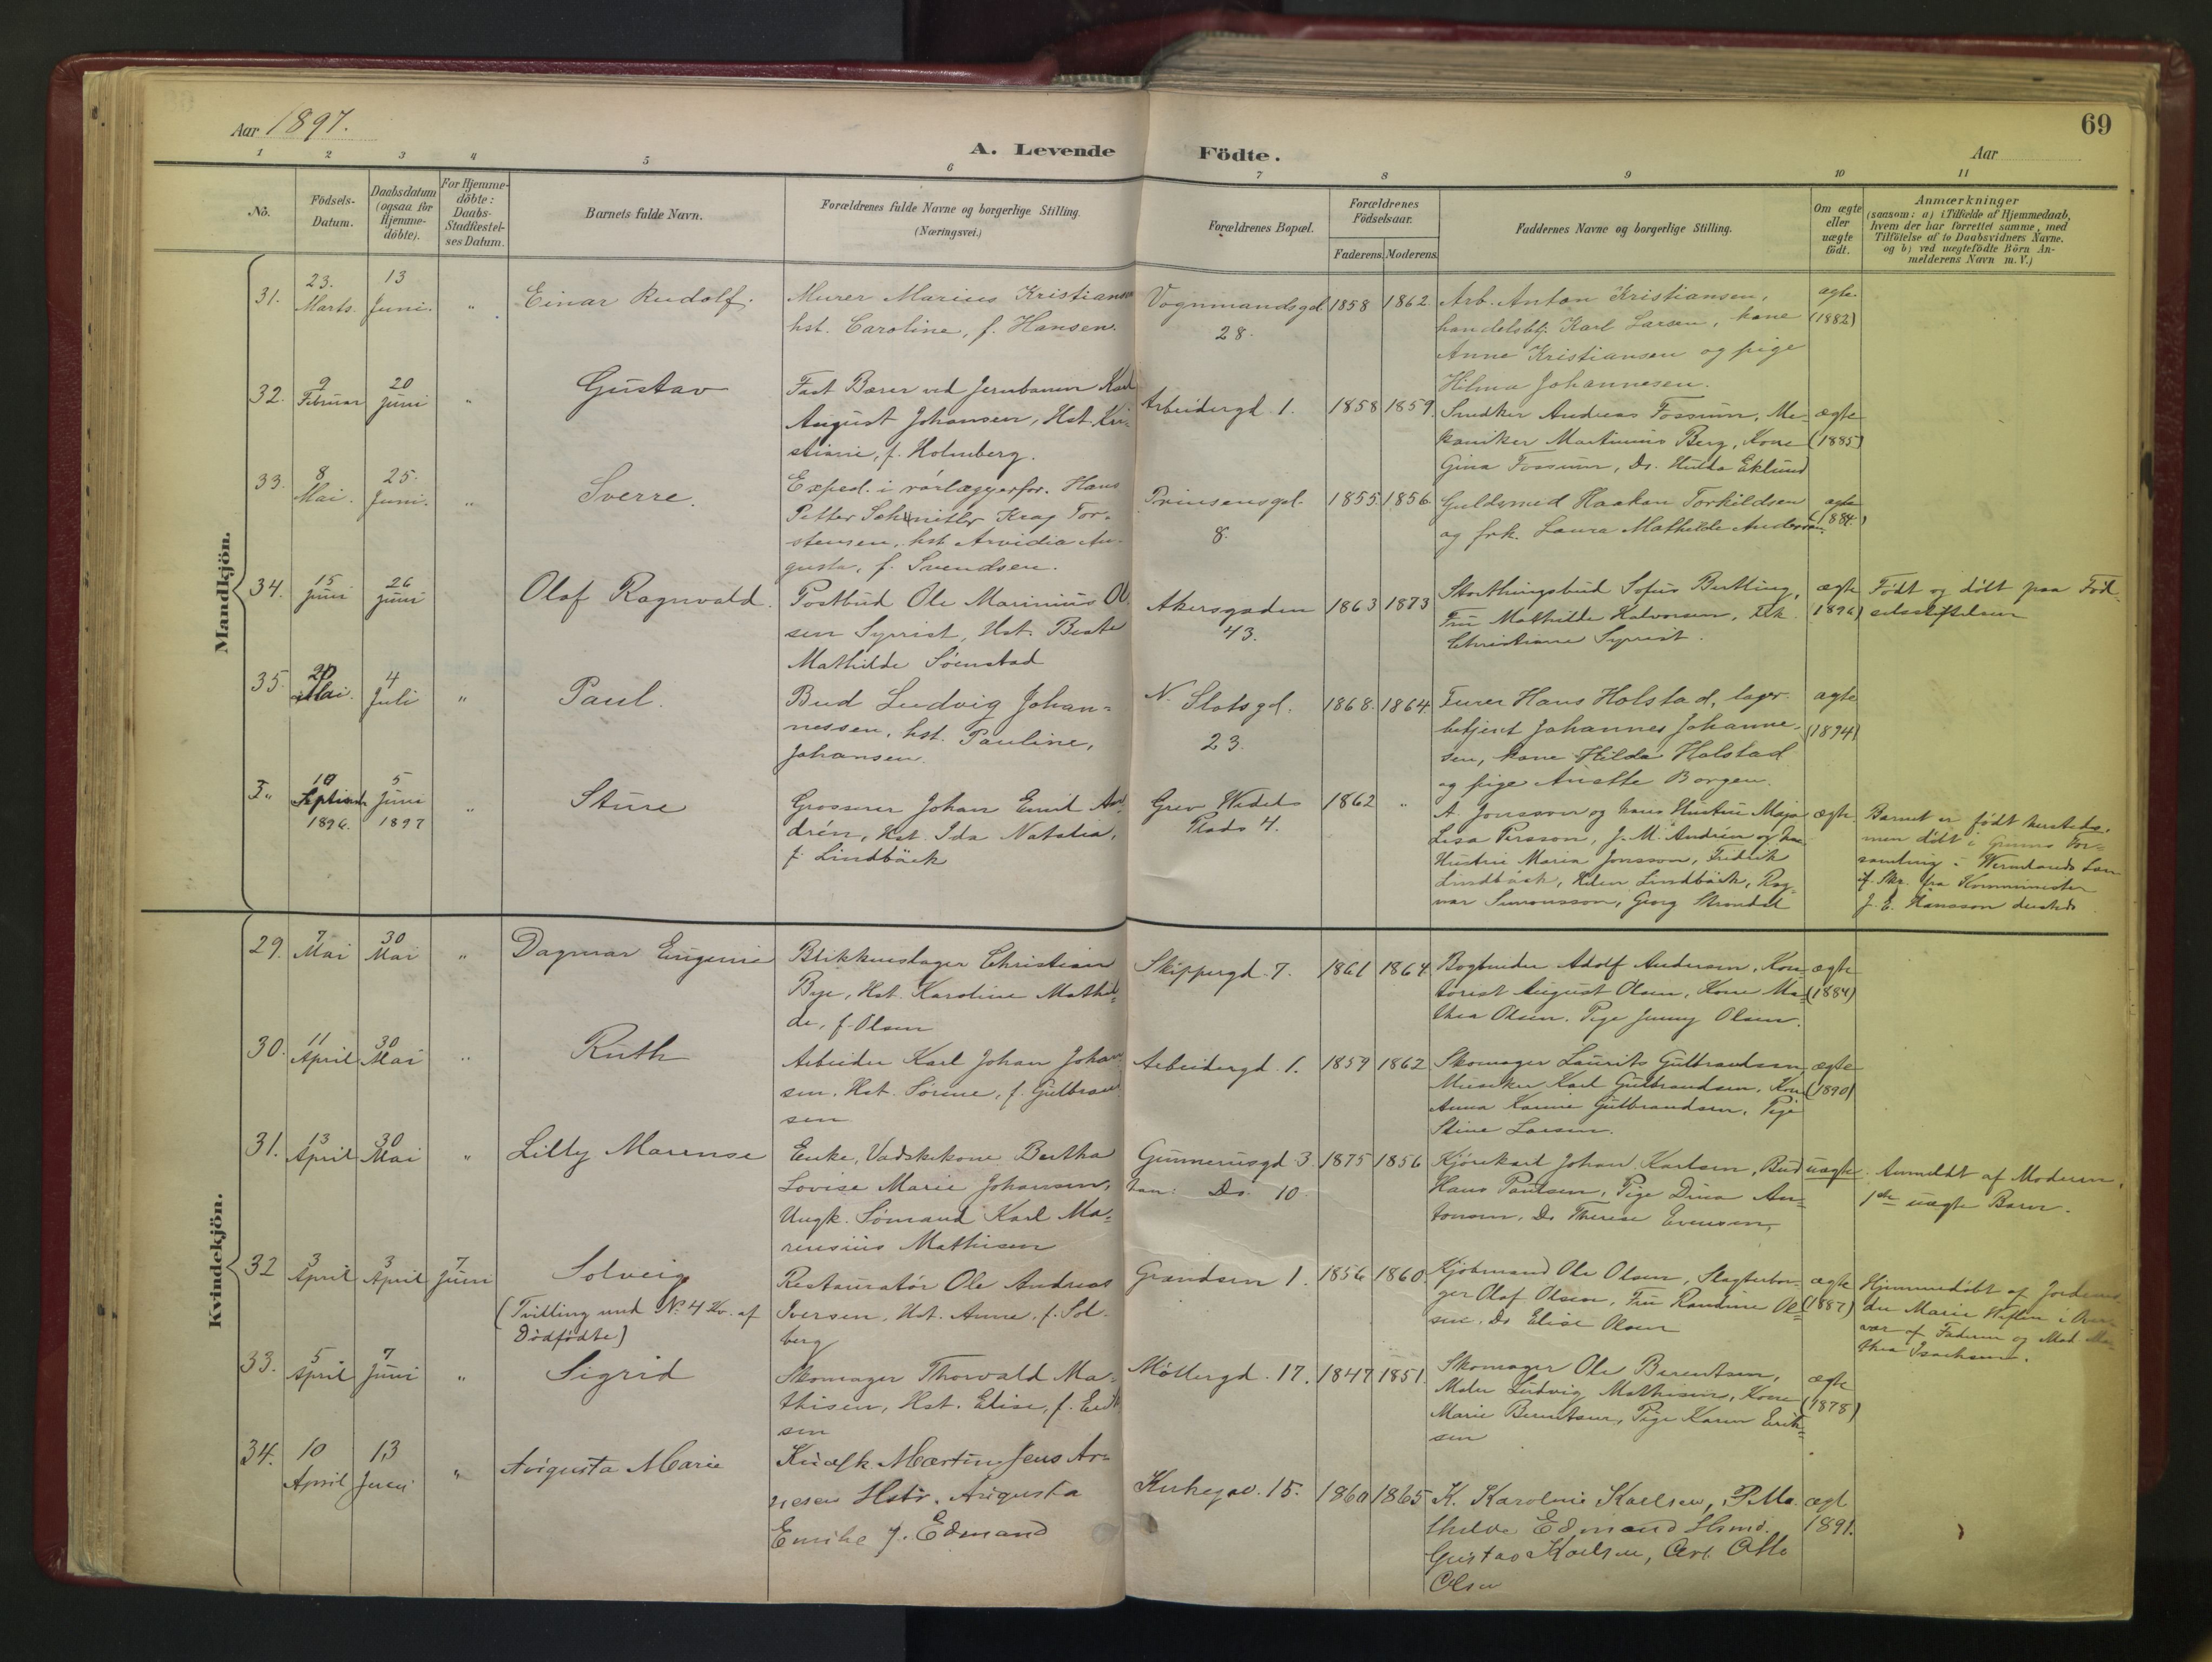 Aar 1897.
A. Levende Födte.
Aar
69
1 2 3 4 5 6 7 8 9 10 11
No.
Födsels-
Datum.
Daabsdatum
(ogsaa for
Hjemme-
döbte).
For Hjemme-
döbte:
Daabs-
Stadfæstel-
ses Datum.
Barnets fulde Navn.
Forældrenes fulde Navne og borgerlige Stilling.
(Næringsvei.)
Forældrenes Bopæl.
Forældrenes
Födselsaar.
Faderens. Moderens.
Faddernes Navne og borgerlige Stilling.
Om ægte
eller
uægte
födt.
Anmærkninger
(saasom: a) i Tilfælde af Hjemmedaab,
hvem der har forrettet samme, med
Tilföielse af to Daabsvidners Navne.
og b) ved uægtefödte Börn An-
melderens Navn m. V.)
Mandkjön.
31.
23.
Marts.
13
Juni.
"
Einar Rudolf.
Murer Marius Kristiansen
hst. Caroline, f. Hansen.
Vognmandsgd.
28.
1858 1862
Arb. Anton Kristiansen,
handelsbtj. Karl Larsen, kone
Anne Kristiansen og pige
Hilma Johannesen.
ægte.
(1882)
32.
9
Februar
20
Juni
"
Gustav
Fast Bærer ved Jernbanen Karl
August Johansen, Hst. Kri-
stiane, f. Holmberg.
Arbeidergd. 1.
1858 1859.
Snedker Andreas Fossum, Me-
kaniker Martinius Berg, Kone
Gina Fossum, Do. Hulda Eklund
ægte
(1885)
33.
8
Mai.
25.
Juni.
"
Sverre.
Exped. i rørlæggerfor. Hans
Petter Schnitler Krag Tor-
stensen, hst. Arvidia Au-
gusta, f. Svendsen.
Prinsensgd.
8.
1855. 1856
Guldsmed Haakon Torkildsen
og frk. Laura Mathilde Andersen.
ægte
(1884.)
34.
15
Juni
26
Juni
Olaf Ragnvald.
Postbud Ole Marinius Ol-
sen Syrrist, Hst. Beate
Mathilde Sønstad
Akersgaden
43.
1863 1873
Storthingsbud Sofus Butling,
Fru Mathilde Halvorsen, Frk.
Christiane Syrrist.
ægte
(1896)
Født og døbt paa Fød-
selsstiftelsen
35.
20
Mai.
4
Juli
"
Paul.
Bud Ludvig Johan-
nessen, hst. Pauline,
Johansen.
N. Slotsgd.
23.
1868. 1864.
Furer Hans Holstad, lager-
betjent Johannes Johanne-
sen, kone Hilda Holstad
og pige Anette Borgen.
ægte
(1894)
I"
10
Septembr
1896.
5
Juni
1897
"
Sture
Grosserer Johan Emil An-
drén, Hst. Ida Natalia,
f. Lindbäck
Grev Wedels
Plads 4.
1862 "
A. Jonsson og hans Hustru Maja
Lisa Persson, J. M. Andrén og hans
Hustru Maria Jonsson, Fredrik
Lindbäck, Helen Lindbäck, Rag-
nar Simonsson, Georg Strondal
ægte
Barnet er født hersteds,
men døbt i Grums For-
samling i Wermlands Län
if. Skr. fra Komminister
J. E. Hansson dersteds
Kvindekjön.
29.
7
Mai
30
Mai
"
Dagmar Eugenie
Blikkenslager Christian
Bye, Hst. Karoline Mathil-
de, f. Olsen
Skippergd. 7.
1861 1864
Bogbinder Adolf Andersen, Kon-
torist August Olsen, Kone Ma-
thea Olsen. Pige Jenny Olsen.
ægte
(1884)
30.
11
April
30
Mai
"
Ruth
Arbeider Karl Johan Johan-
sen, Hst. Sørine, f. Gulbrand-
sen
Arbeidergd. 1.
1859 1862
Skomager Laurits Gulbrandsen
Musiker Karl Gulbrandsen, Kone
Anna Karine Gulbrandsen, Pige
Stine Larsen.
ægte
(1890)
31.
13
April
30
Mai
"
Lilly Marense
Enke, Vadskekone Bertha
Lovise Marie Johansen,
Ungk. Sømand Karl Ma-
rensius Mathisen
Gunnerusgd. 3
han: Do. 10.
1875 1856
Kjørekarl Johan Karlsen, Bud
Hans Paulsen, Pige Dina An-
tonsen, Do. Therese Evensen,
uægte.
Anmeldt af Moderen,
1ste uægte Barn.
32
3
April
3
April
7
Juni
Solveig
(Tvilling med No. 4 Kv. af
Dödfödte)
Restauratør Ole Andreas
Iversen, Hst. Anne, f. Sol-
berg
Grændsen 1.
1856 1860.
Kjøbmand Ole Olsen, Slagterbor-
ger Olaf Olsen, Fru Randine Ol-
sen. Do Elise Olsen
ægte
(1887)
Hjemmedøbt af Jordemo-
der Marie i Over-
vær af Faderen og Mad. Ma-
thea Isachsen.
33.
5
April
7
Juni
"
Sigrid
Skomager Thorvald Ma-
thisen, Hst. Elise, f. Erik-
sen
Møllergd. 17.
1847 1851.
Skomager Ole Berentsen,
Maler Ludvig Mathisen, Kone
Marie Berentsen, Pige Karen Erik-
sen
ægte
(1878)
34.
10
April
13
Juni
"
Augusta Marie
Martin Jens Ar-
nesen Hstr. Augusta
Emilie f. Edmand
Kirkegd. 15.
1860 1865
K. Karoline Karlsen, P. Ma-
thilde Edmand
Gustav Karlsen, Arb. Otto
Olsen
ægt.
1891.